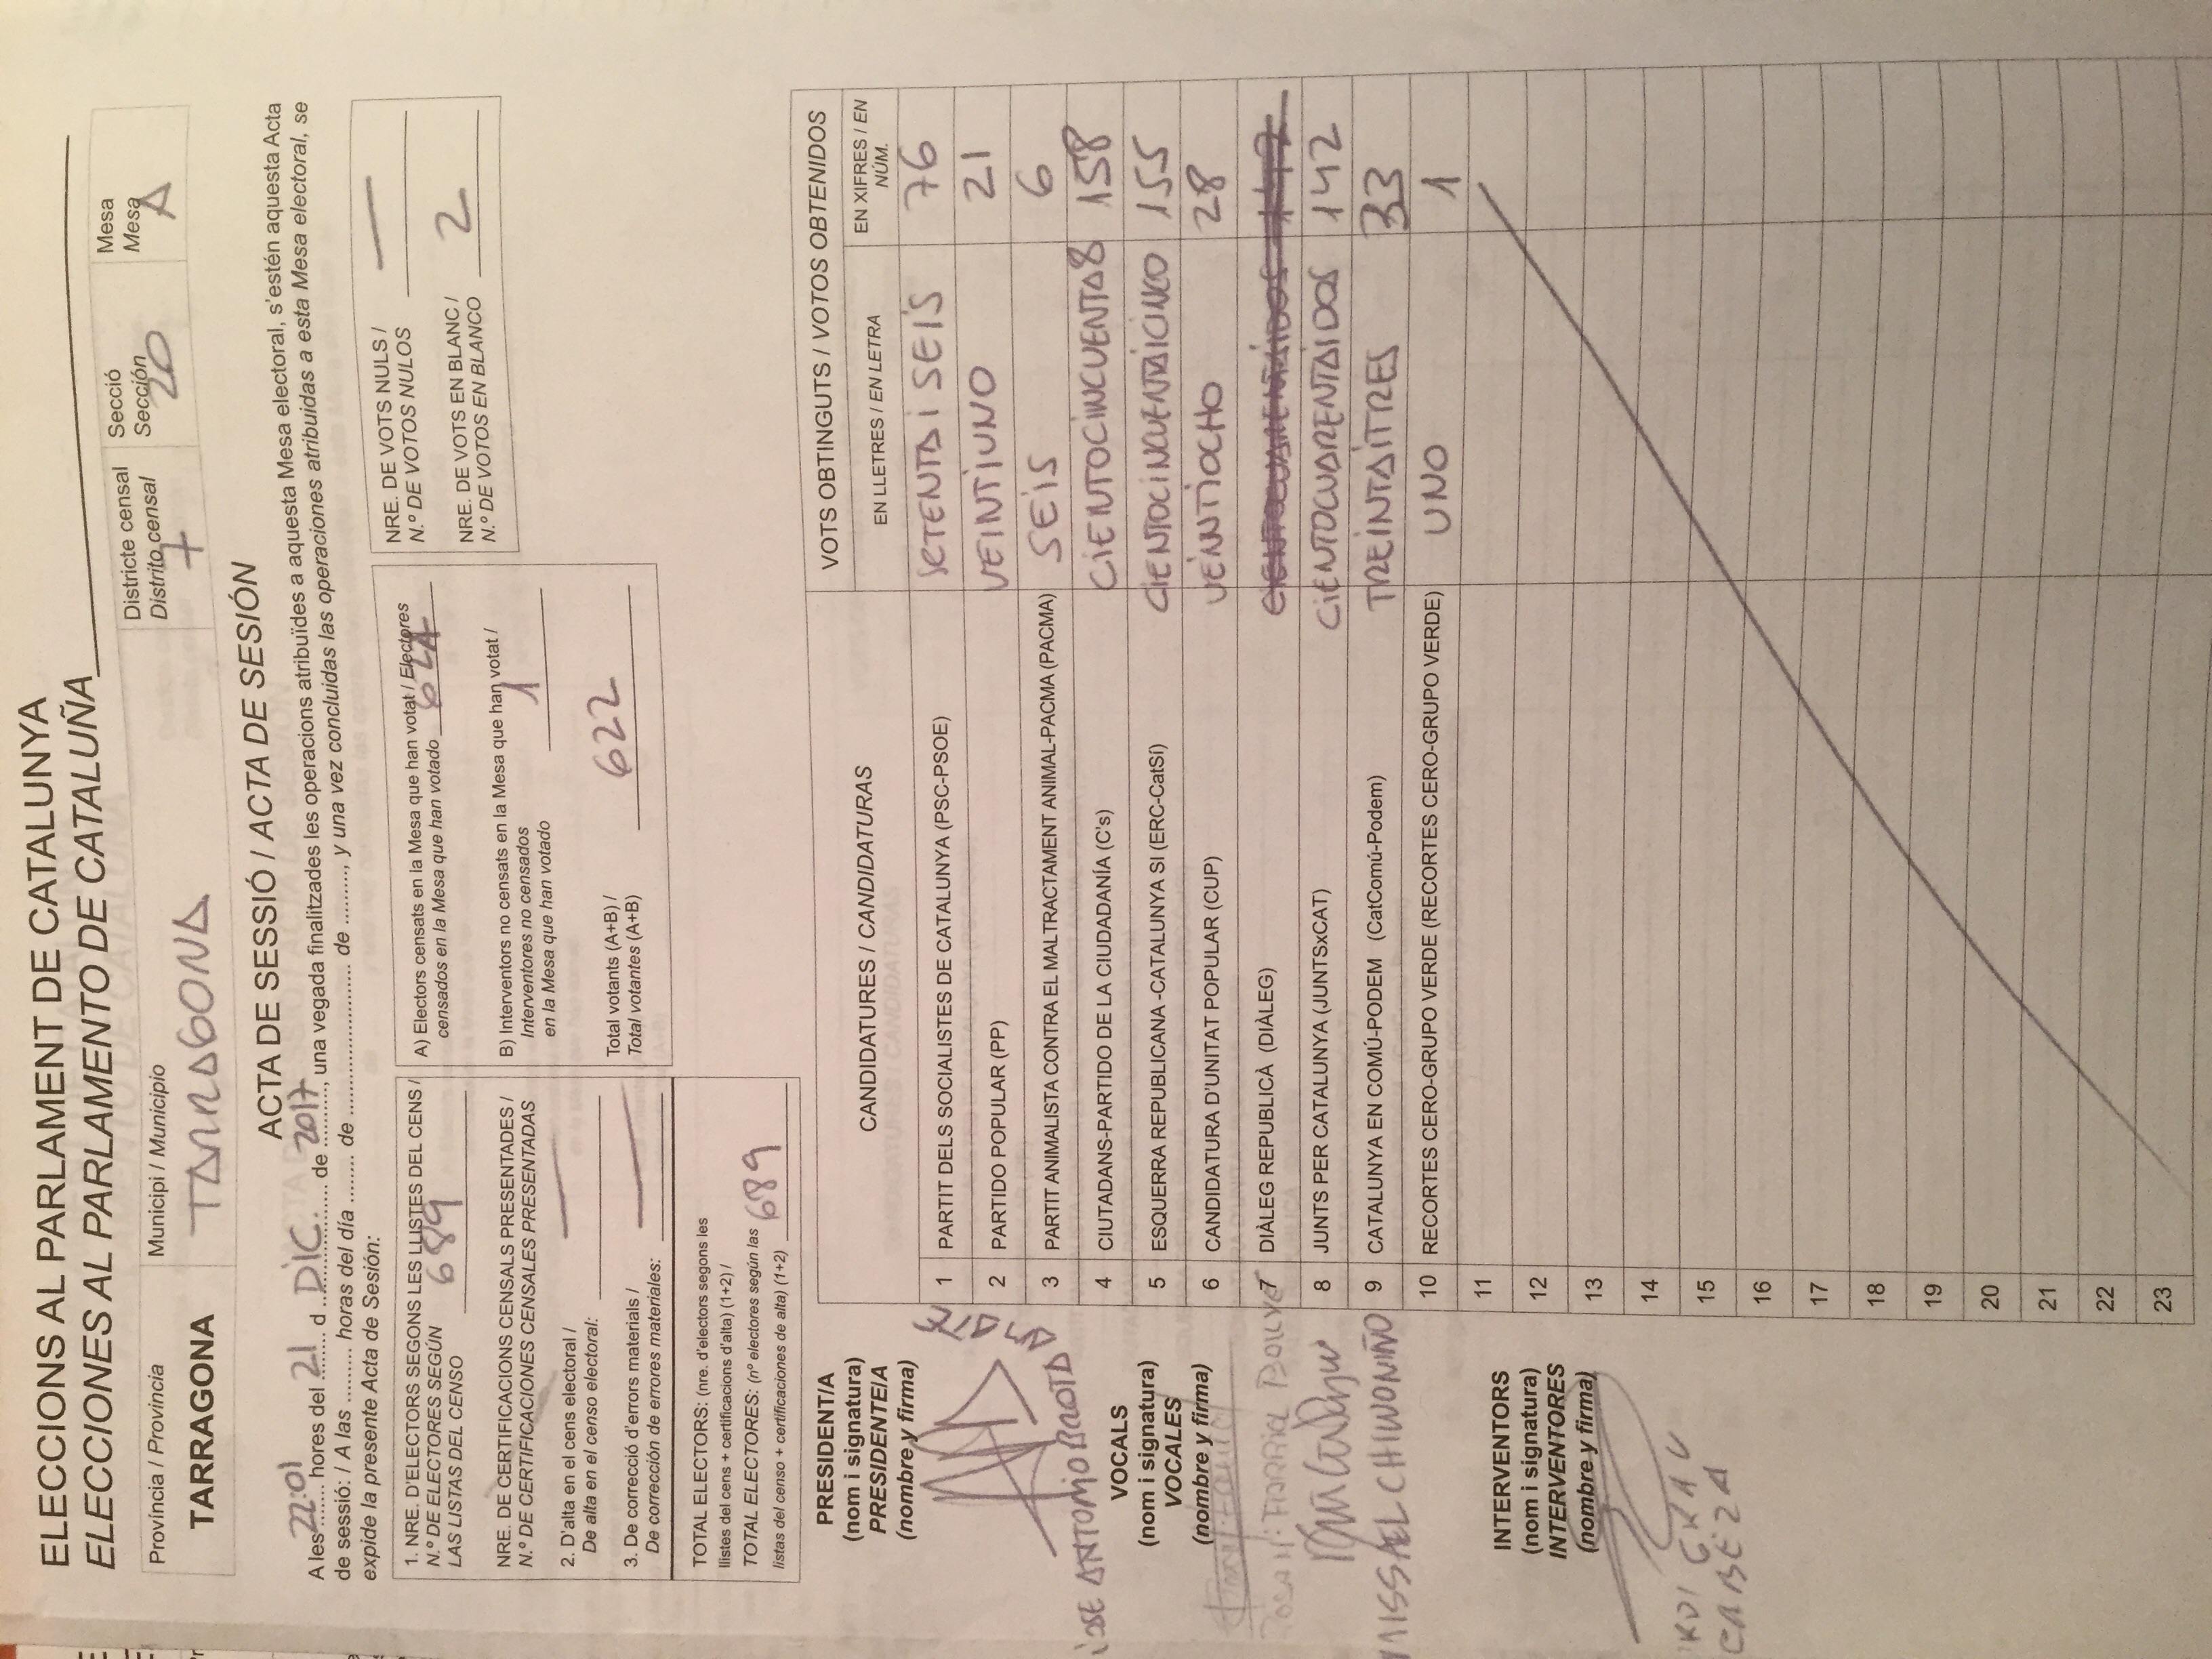 ELECCIONS AL PARLAMENT DE CATALUNYA
ELECCIONES AL PARLAMENTO DE CATALUÑA
Província / Provincia
TARRAGONA
Municipi / Municipio
TARRAGONA
Districte censal
Distrito censal
7
Secció
Sección
20
Mesa
Mesa
A
ACTA DE SESSIÓ / ACTA DE SESIÓN
A les 22:01 hores del 21 d DIC. de 2017, una vegada finalitzades les operacions atribuïdes a aquesta Mesa electoral, s'estén aquesta Acta
de sessió: / A las ......... horas del día ........ de ......................... de ........., y una vez concluidas las operaciones atribuidas a esta Mesa electoral, se
expide la presente Acta de Sesión:
1. NRE. D'ELECTORS SEGONS LES LLISTES DEL CENS /
N.º DE ELECTORES SEGÚN
LAS LISTAS DEL CENSO 689
NRE. DE CERTIFICACIONS CENSALS PRESENTADES /
N.º DE CERTIFICACIONES CENSALES PRESENTADAS
2. D'alta en el cens electoral /
De alta en el censo electoral: —
3. De correcció d'errors materials /
De corrección de errores materiales: —
TOTAL ELECTORS: (nre. d'electors segons les
llistes del cens + certificacions d'alta) (1+2) /
TOTAL ELECTORES: (nº electores según las
listas del censo + certificaciones de alta) (1+2) 689
A) Electors censats en la Mesa que han votat / Electores
censados en la Mesa que han votado 621
B) Interventors no censats en la Mesa que han votat /
Interventores no censados
en la Mesa que han votado 1
Total votants (A+B) /
Total votantes (A+B) 622
NRE. DE VOTS NULS /
N.º DE VOTOS NULOS —
NRE. DE VOTS EN BLANC /
N.º DE VOTOS EN BLANCO 2
PRESIDENT/A
(nom i signatura)
PRESIDENTE/A
(nombre y firma)
JOSE ANTONIO BROTA
VOCALS
(nom i signatura)
VOCALES
(nombre y firma)
MISSAEL CHIWO NIÑO
INTERVENTORS
(nom i signatura)
INTERVENTORES
(nombre y firma)
GRAU
CABEZA
CANDIDATURES / CANDIDATURAS
VOTS OBTINGUTS / VOTOS OBTENIDOS
EN LLETRES / EN LETRA
EN XIFRES / EN
NÚM.
1 PARTIT DELS SOCIALISTES DE CATALUNYA (PSC-PSOE) SETENTA i SEIS 76
2 PARTIDO POPULAR (PP) VEINTIUNO 21
3 PARTIT ANIMALISTA CONTRA EL MALTRACTAMENT ANIMAL-PACMA (PACMA) SEIS 6
4 CIUTADANS-PARTIDO DE LA CIUDADANÍA (C's) CIENTOCINCUENTA8 158
5 ESQUERRA REPUBLICANA -CATALUNYA SI (ERC-CatSí) CIENTOCINCUENTAICINCO 155
6 CANDIDATURA D'UNITAT POPULAR (CUP) VEINNTIOCHO 28
7 DIÀLEG REPUBLICÀ (DIÀLEG) CIENTOCUARENTAIDOS 142
8 JUNTS PER CATALUNYA (JUNTSxCAT) CIENTOCUARENTAIDOS 142
9 CATALUNYA EN COMÚ-PODEM (CatComú-Podem) TREINTAITRES 33
10 RECORTES CERO-GRUPO VERDE (RECORTES CERO-GRUPO VERDE) UNO 1
11
12
13
14
15
16
17
18
19
20
21
22
23